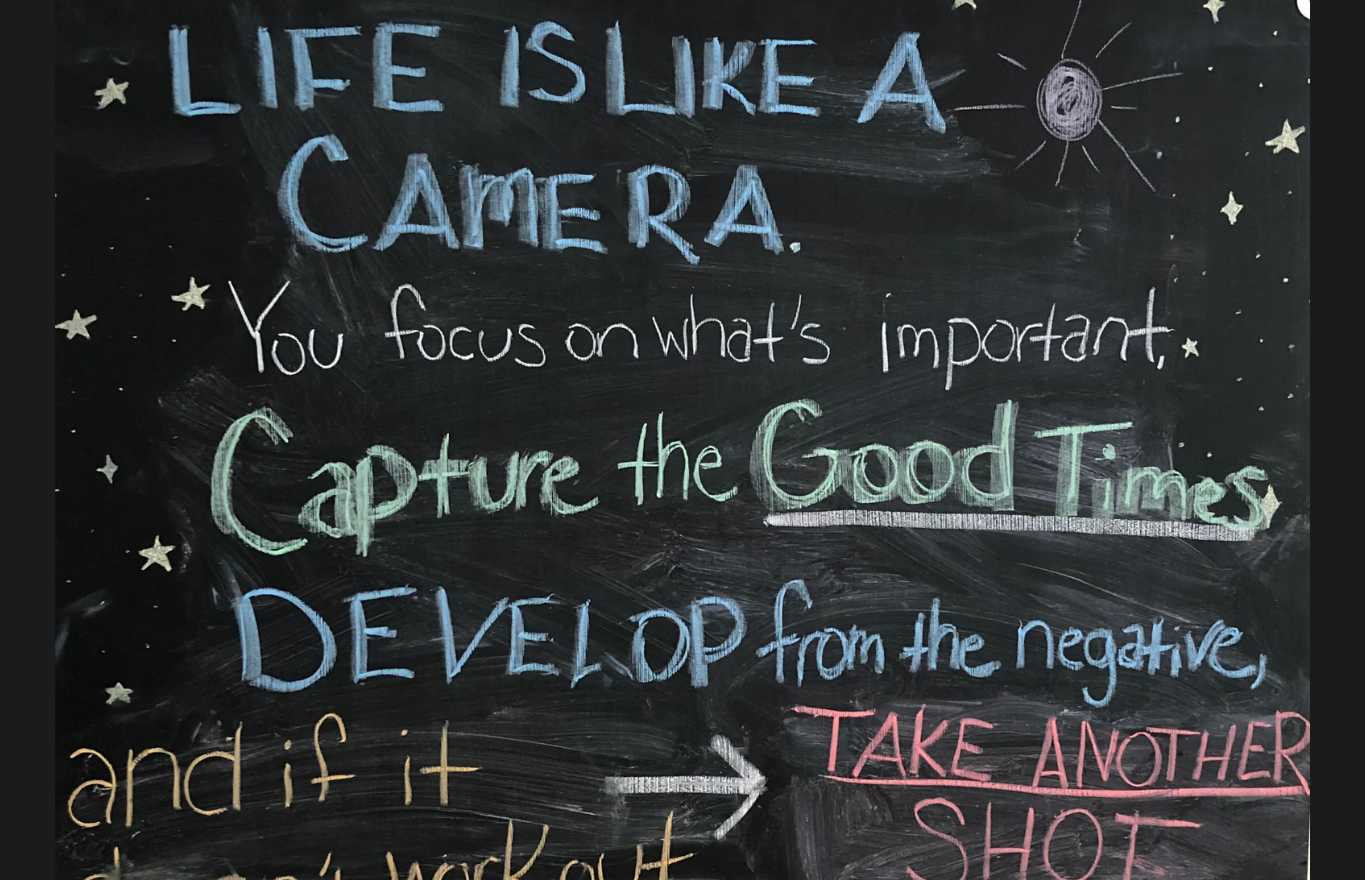 LIFE IS LIKE A
CAMERA.
You focus on what's important,
Capture the Good Times,
DEVELOP from the negative,
and if it
doesn't work out
TAKE ANOTHER
SHOT